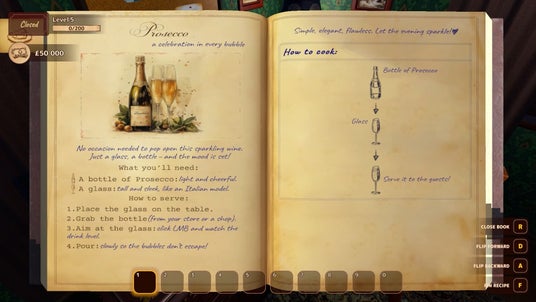 Closed
Level 5
0/200
£50 000
Prosecco
a celebration in every bubble
No occasion needed to pop open this sparkling wine.
Just a glass, a bottle – and the mood is set!
What you'll need:
A bottle of Prosecco: light and cheerful.
A glass: tall and sleek, like an Italian model.
How to serve:
1.Place the glass on the table.
2.Grab the bottle (from your store or a shop).
3.Aim at the glass: click LMB and watch the
drink level.
4.Pour: slowly so the bubbles don't escape!
Simple, elegant, flawless. Let the evening sparkle!
How to cook:
Bottle of Prosecco
Glass
Serve it to the guests!
CLOSE BOOK R
FLIP FORWARD D
FLIP BACKWARD A
PIN RECIPE F
1 2 3 4 5 6 7 8 9 0